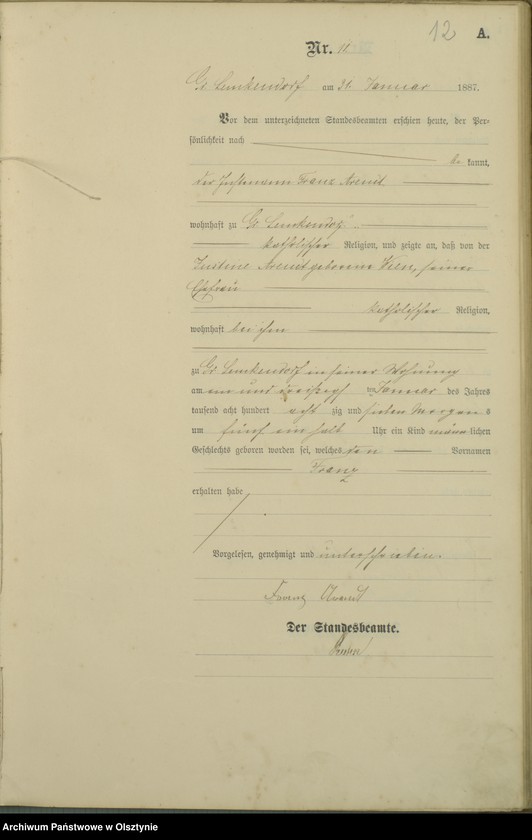 12 A.
Nr. 11
Gr. Lemkendorf am 31. Januar 1887.
Vor dem unterzeichneten Standesbeamten erschien heute, der Per-
sönlichkeit nach
be kannt,
der Franz Arendt
wohnhaft zu Gr. Lemkendorf
katholischer Religion, und zeigte an, daß von der
Justine Arendt geborene, seiner
Ehefrau
katholischer Religion,
wohnhaft bei ihm
zu Gr. Lemkendorf in seiner Wohnung
am ein und dreißigsten Januar des Jahres
tausend acht hundert acht zig und sieben Morgens
um fünf ein halb Uhr ein Kind männlichen
Geschlechts geboren worden sei, welches den Vornamen
Franz
erhalten habe
Vorgelesen, genehmigt und unterschrieben.
Franz Arendt
Der Standesbeamte.
Archiwum Państwowe w Olsztynie